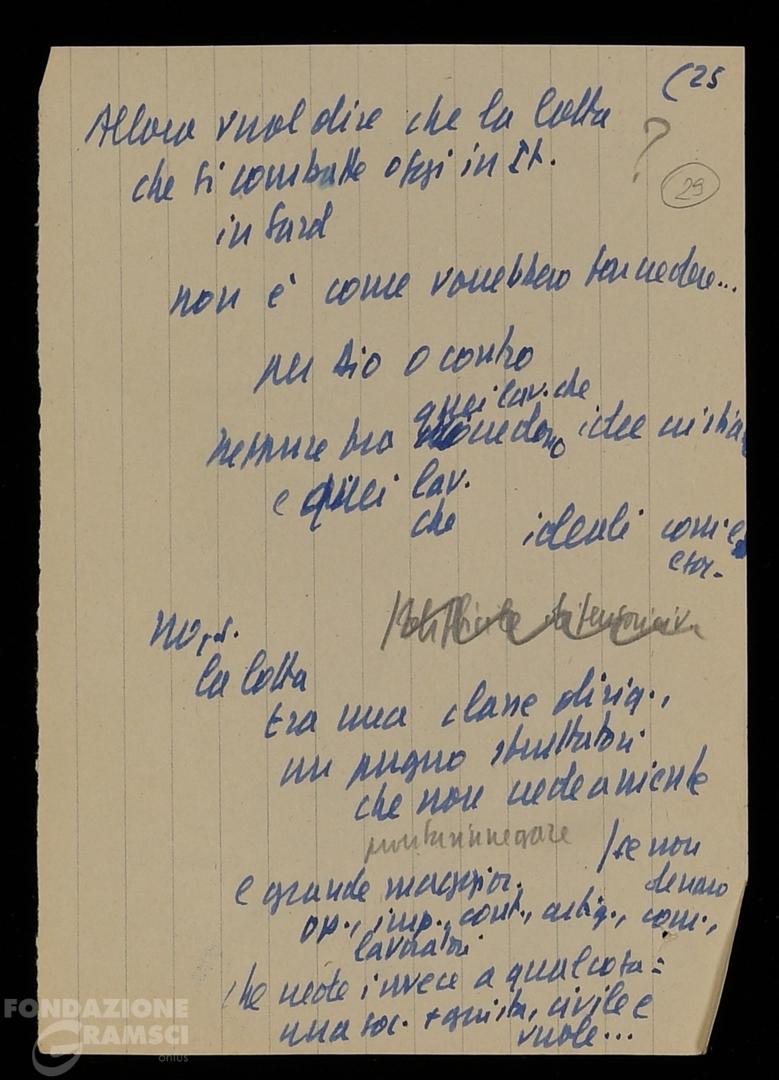 (25
Allora vuol dire che la lotta
?
che si combatte oggi in It.
29
in Sard
non è come vorrebbero far credere...
per Dio o contro
quei lav. che
neppure tra credono idee cristia
e quei lav.
che ideali com. e
no, s.
la lotta
tra una classe dirig.,
un pugno sfruttatori
che non crede a niente
pronta rinnegare
/se non
denaro
e grande maggior.
op., imp., cont., artig., com.,
lavoratori
che crede invece a qualcosa =
una soc. + giusta, civile e
vuole...
FONDAZIONE
GRAMSCI
onlus